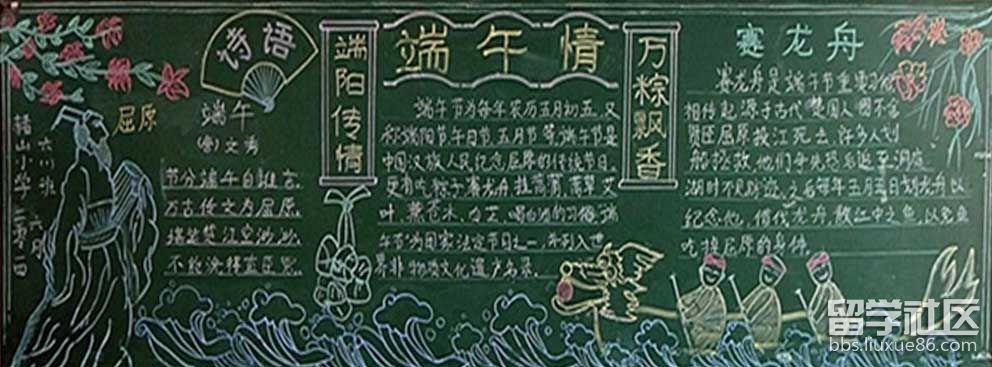 诗语
端午
(唐)文秀
节分端午自谁言,
万古传文为屈原。
堪笑楚江空渺渺,
不能洗得直臣冤。
屈原
六(1)班 六月
山小学 二零
端阳传情
端午情
万粽飘香
端午节为每年农历五月初五,又
称端阳节午日节五月节等,端午节是
中国汉族人民纪念屈原的传统节日,
更有吃粽子赛龙舟挂菖蒲蒿草艾
叶,薰苍术、白芷、喝白酒的习俗,端
午节为国家法定节日之一,并列入世
界非物质文化遗产名录。
赛龙舟
赛龙舟是端午节重要习俗
相传起源于古代楚国人因不舍
贤臣屈原投江死去,许多人划
船拯救,他们争先恐后追至洞庭
湖时不见踪迹,之后每年五月五日划龙舟以
纪念他,借代龙舟散江中之鱼,以免鱼
吃掉屈原的身体。
留学社区
bbs.liuxue86.com